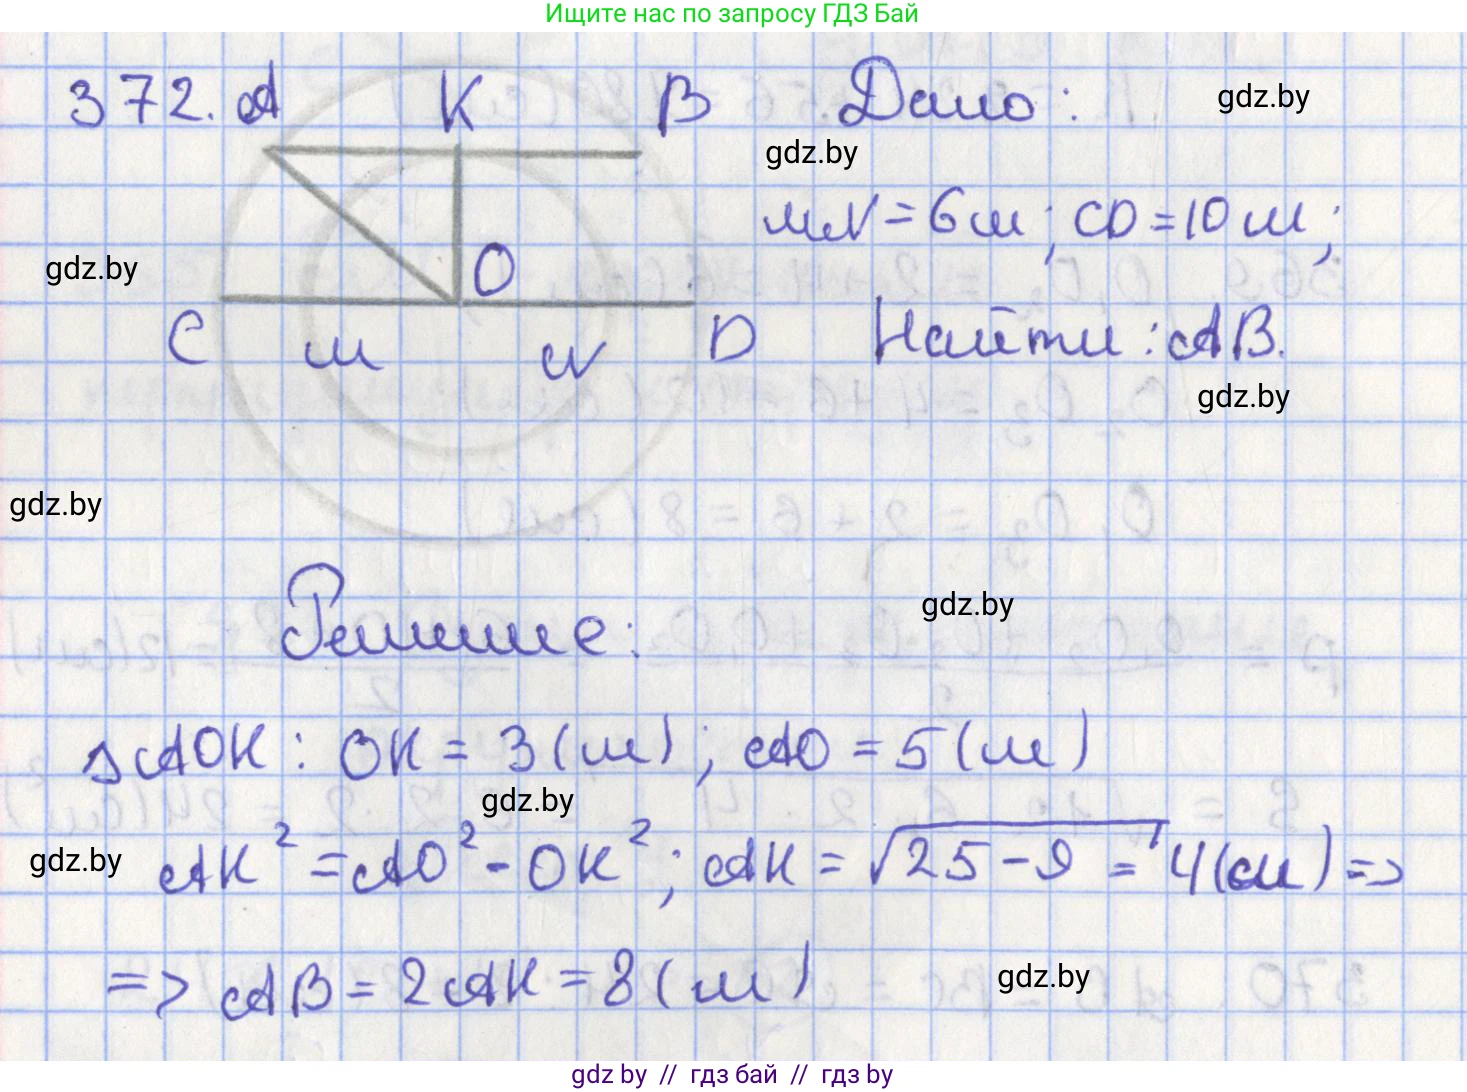 Ищите нас по запросу ГДЗ Бай
372. A K B Дано:
gdz.by
gdz.by
MN = 6 м; CD = 10 м;
O
gdz.by
C M N D Найти: AB.
gdz.by
gdz.by
Решение:
gdz.by
△AOK: OK = 3 (м); AO = 5 (м)
gdz.by
AK² = AO² - OK²; AK = √25 - 9 = 4 (см) =>
gdz.by
=> AB = 2AK = 8 (м)
gdz.by
gdz by // гдз бай // гдз by